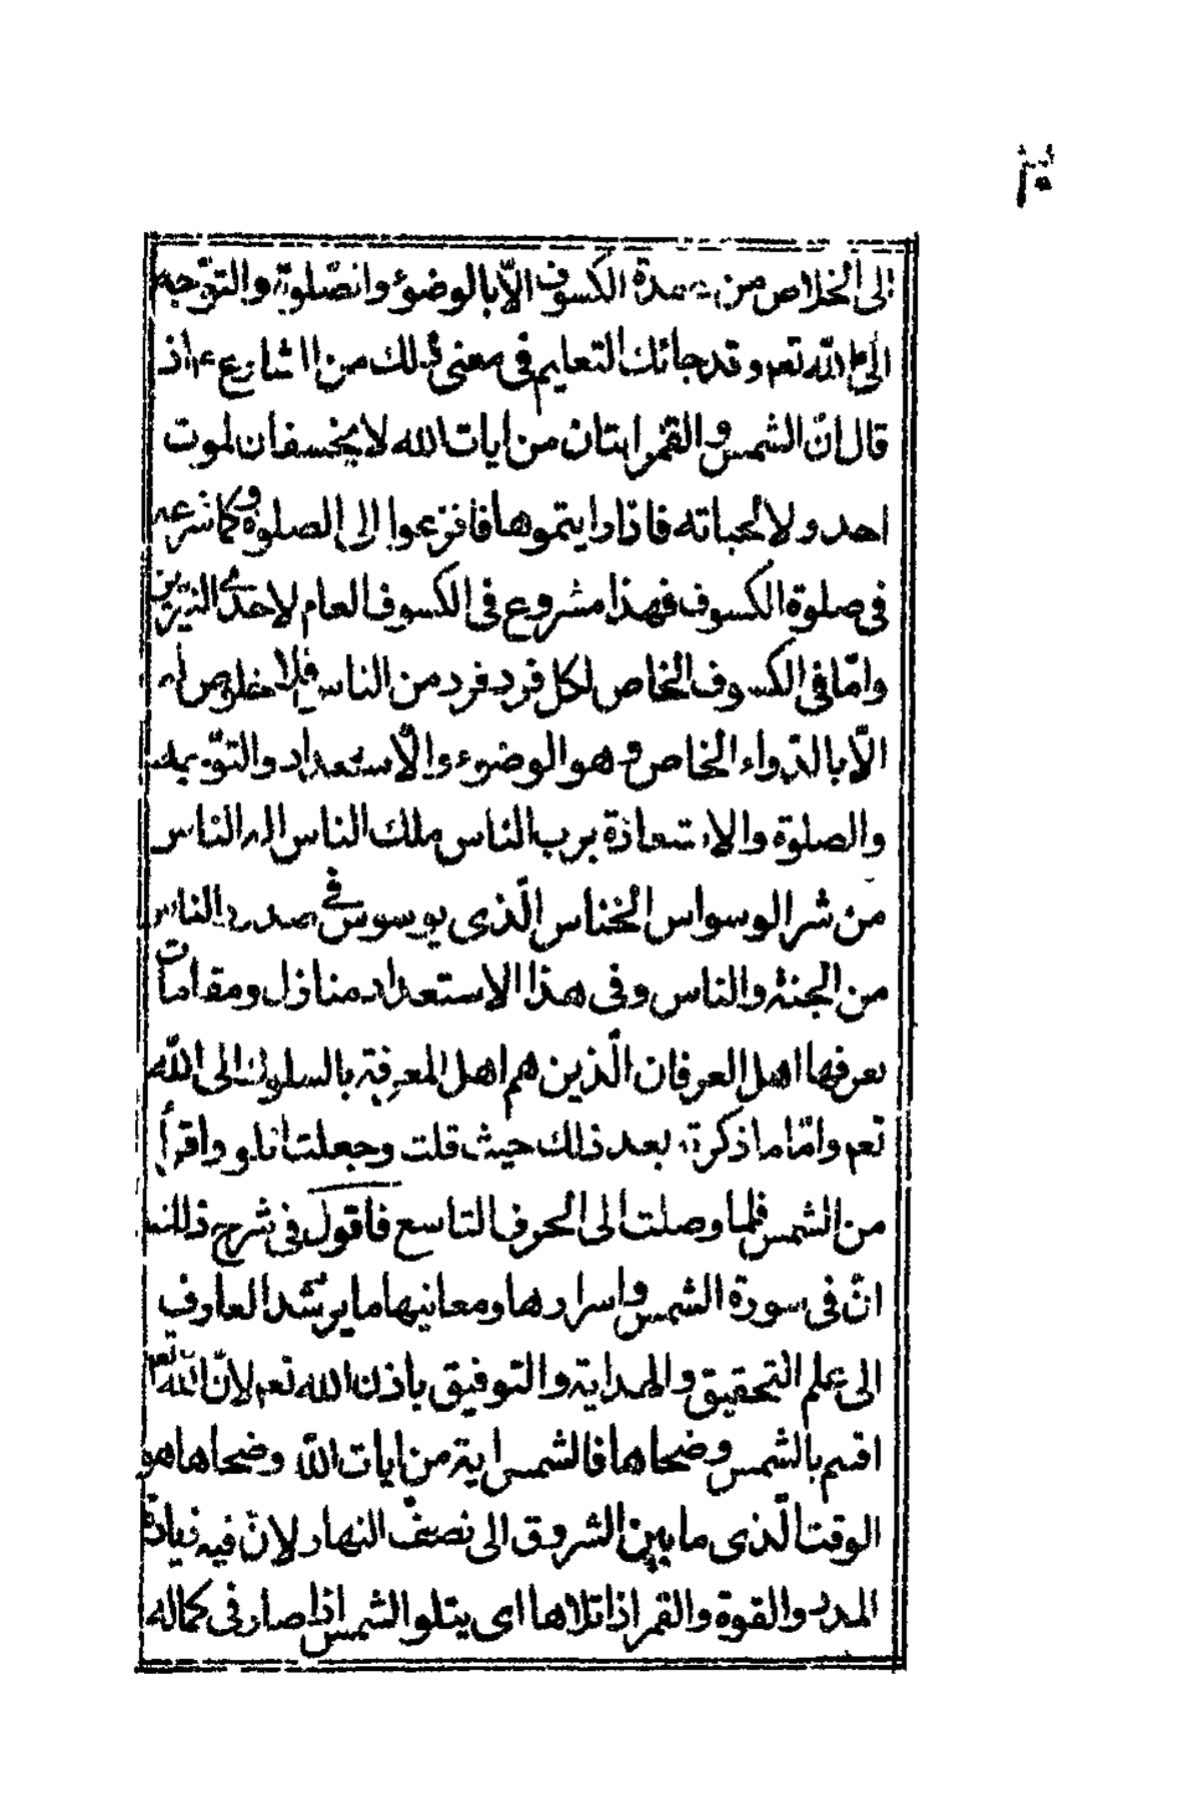 الى الخلاص من هذة الكسوف الّا بالوضوء والصّلوة والتوّجه
الى الله تعم وقد جائك التعليم فى معنى ذلك من الشارع ع م اذ
قال انّ الشمس والقمر ايتان من ايات الله لا يخسفان لموت
احد ولا لحياته فاذا رايتموها فافزعوا الى الصلوة وكما شرعه
فى صلوة الكسوف فهذا مشروع فى الكسوف العام لاحدى النيّرين
وامّا فى الكسوف الخاص لكل فرد فرد من الناس فلا خلوص له
الّا بالدّواء الخاص وهو الوضوء والّاستعداد والتوّجه
والصلوة والاستعاذة برب الناس ملك الناس اله الناس
من شر الوسواس الخناس الّذى يوسوس فى صدور الناس
من الجنة والناس وفى هذا الاستعداد منازل ومقامات
يعرفها اهل العرفان الّذين هم اهل المعرفة بالسلوك الى اللّه
تعم وامّا ما ذكرته بعد ذلك حيث قلت وجعلت اتلو واقرأ
من الشمس فلما وصلت الى الحرف التاسع فاقول فى شرح ذلك
انّ فى سورة الشمس واسرارها ومعانيها ما يرشد العارف
الى علم التحقيق والهداية والتوفيق باذن الله تعم لانّ اللّه تعم
اقسم بالشمس وضحاها فالشمس اية من ايات اللّه وضحاها هو
الوقت الّذى ما بين الشروق الى نصف النهار لانّ فيه زيادة
المدد والقوة والقمر اذا تلاها اى يتلو الشمس اذا صار فى كماله